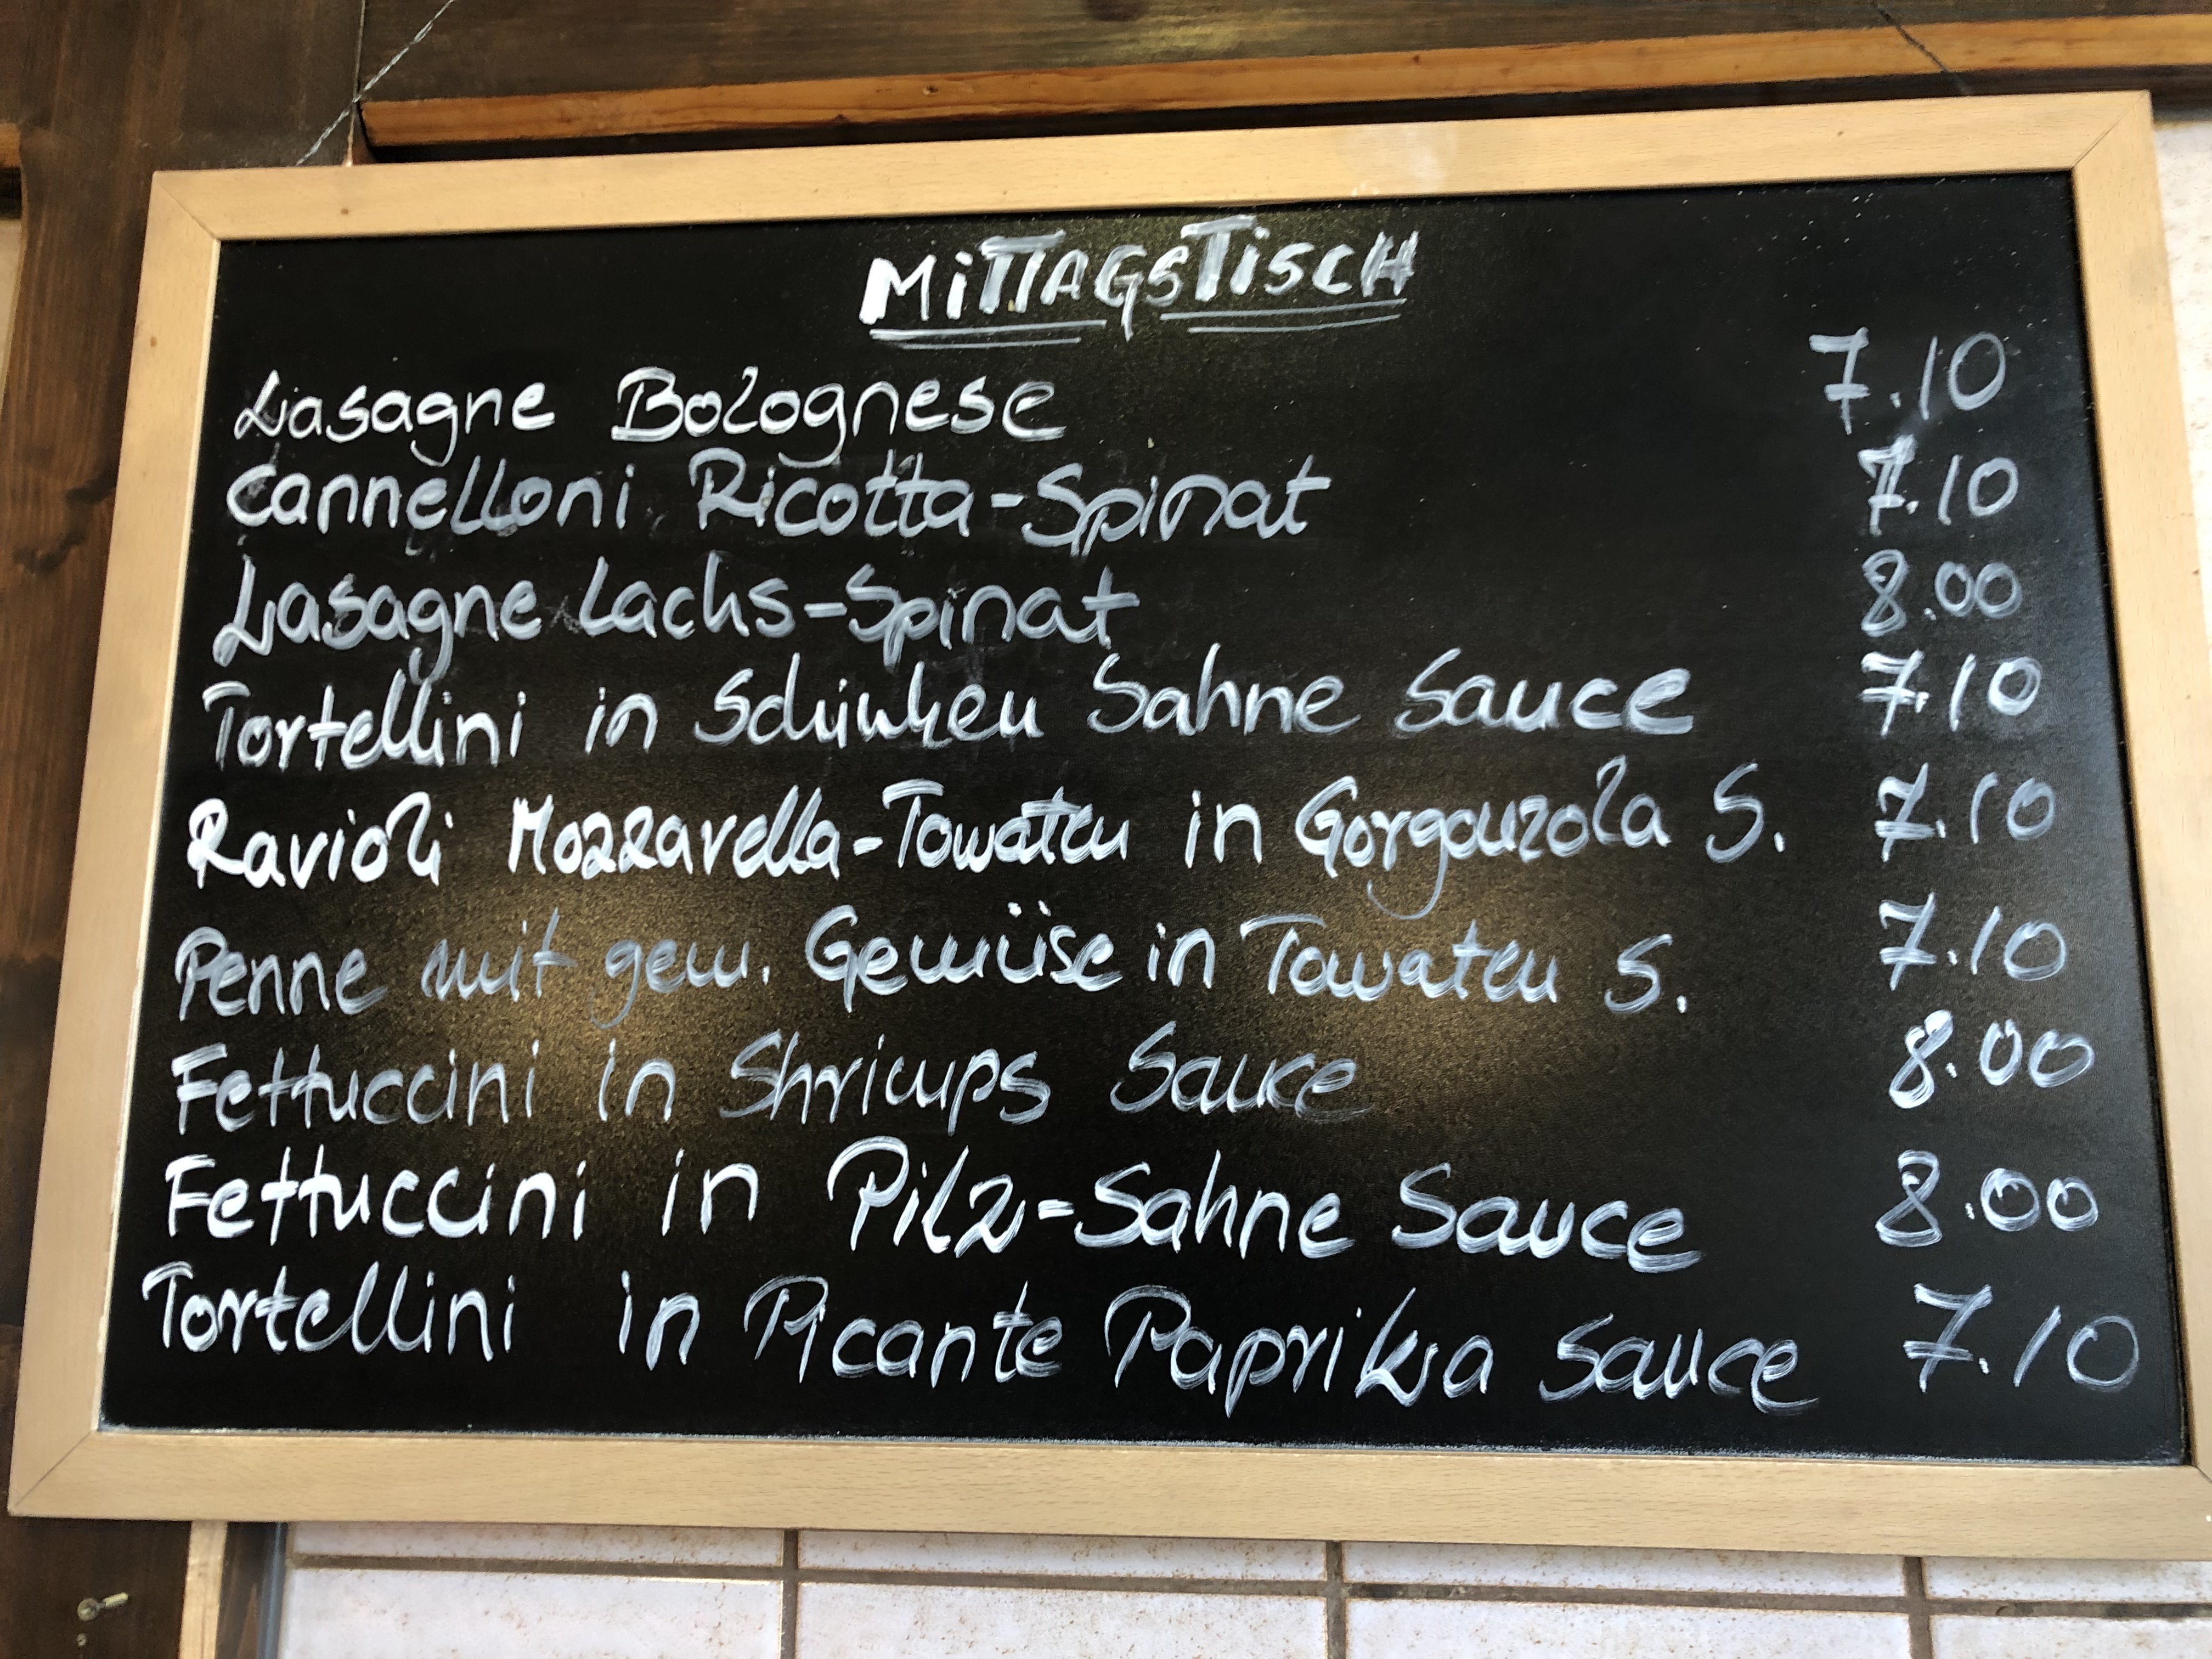 MiTTAGSTiSCH
Lasagne Bolognese 7.10
Cannelloni Ricotta-Spinat 7.10
Lasagne Lachs-Spinat 8.00
Tortellini in Schinken Sahne Sauce 7.10
Ravioli Mozzarella-Tomaten in Gorgonzola S. 7.10
Penne mit gem. Gemüse in Tomaten S. 7.10
Fettuccini in Shrimps Sauce 8.00
Fettuccini in Pilz-Sahne Sauce 8.00
Tortellini in Picante Paprika Sauce 7.10